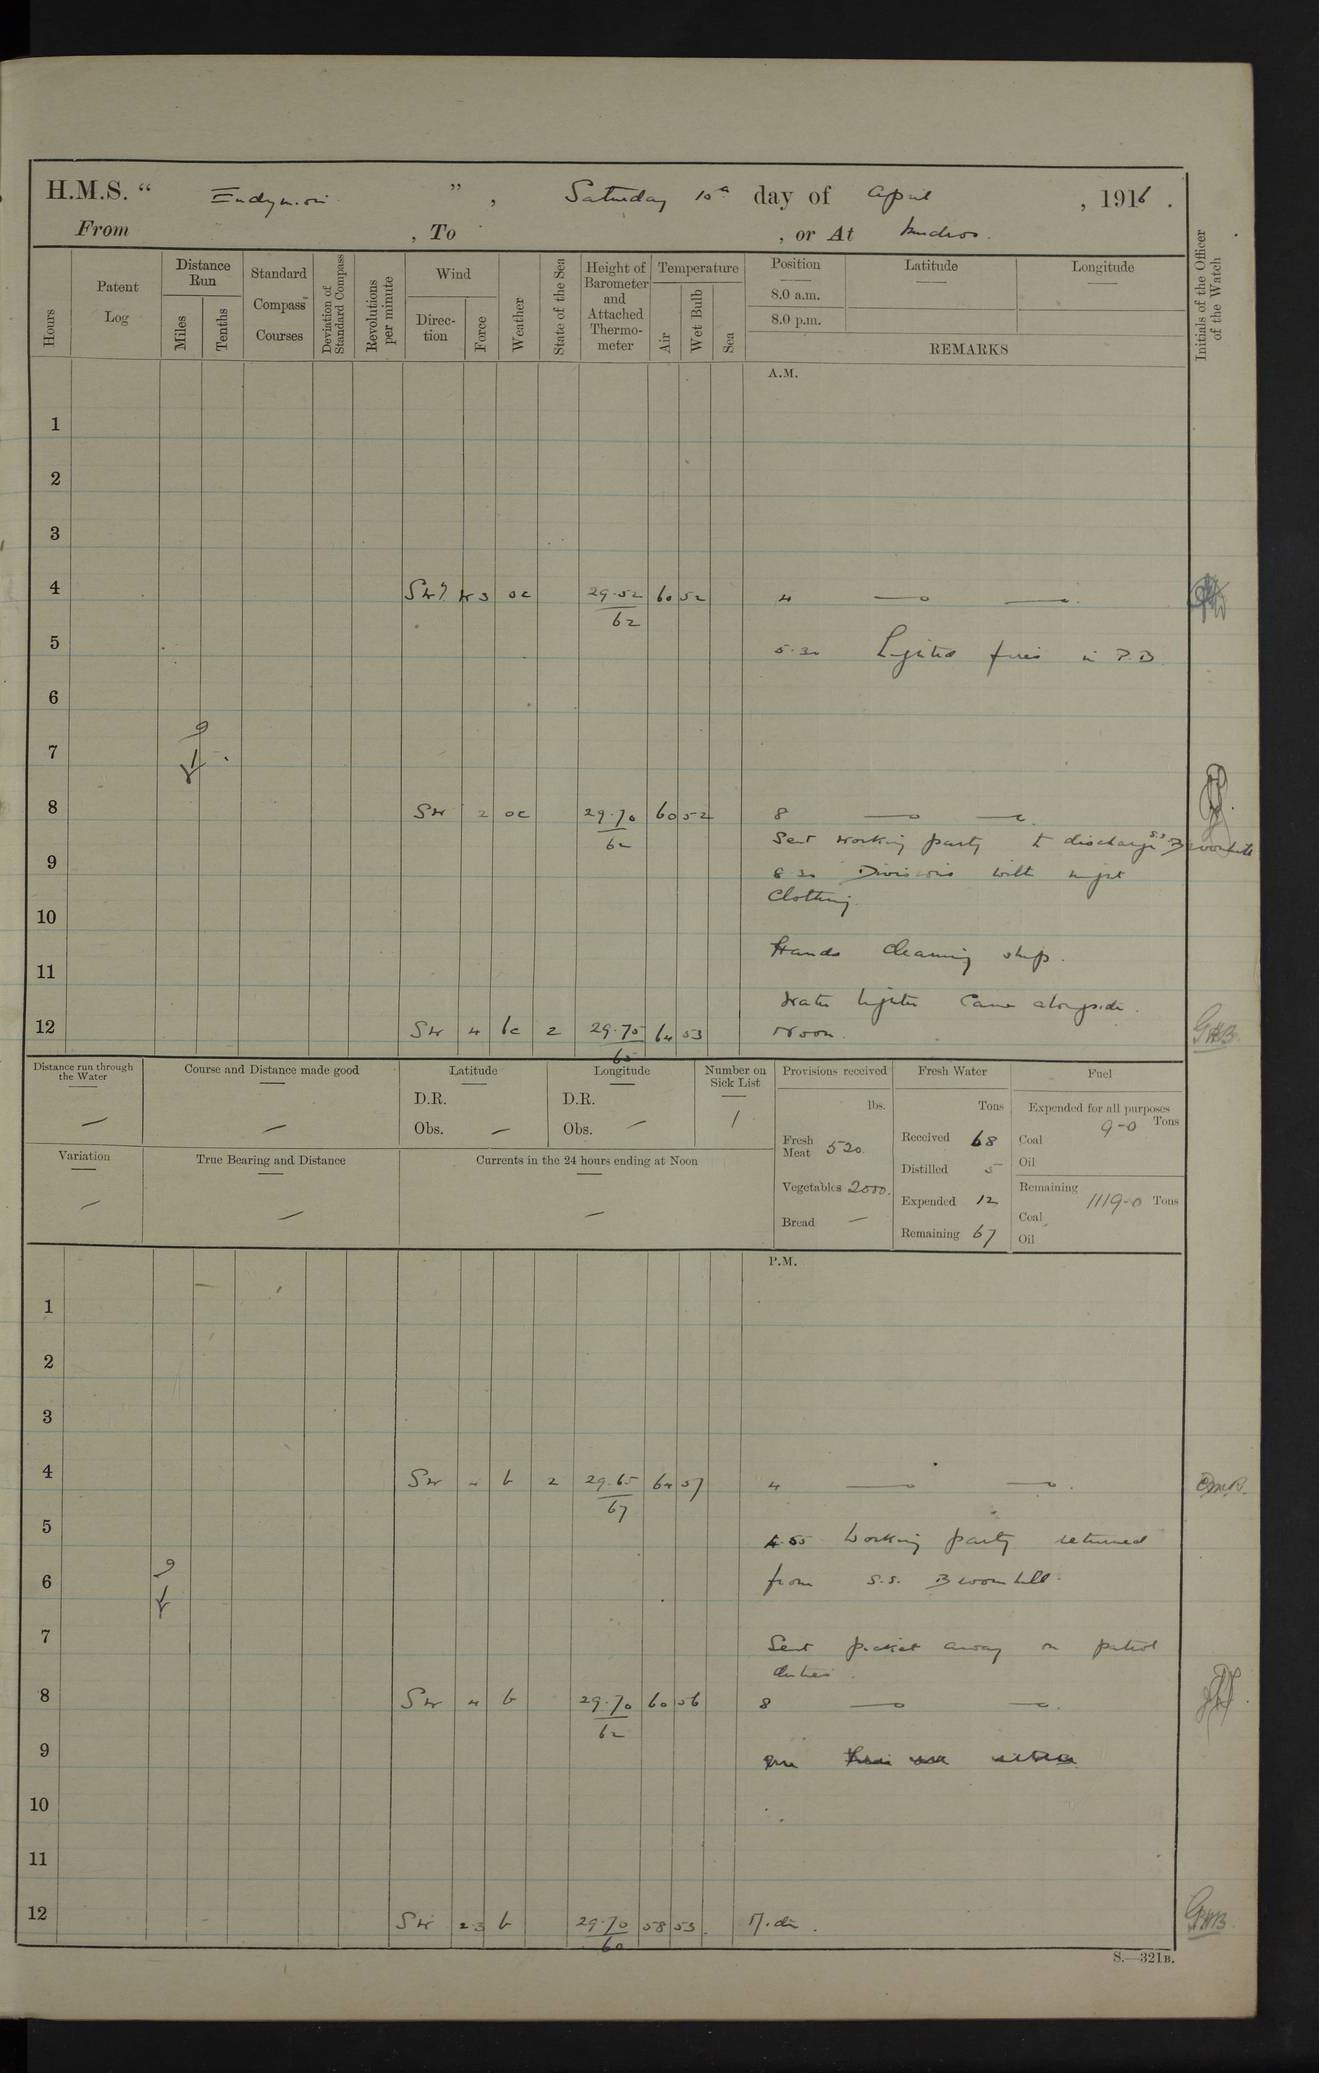 H.M.S. “ Endymion ”, Saturday 15th day of April, 1916.
From , To , or At Mudros.
Hours
Patent Log
Distance Run
Miles
Tenths
Standard Compass Courses
Deviation of Standard Compass
Revolutions per minute
Wind
Direction
Force
Weather
State of the Sea
Height of Barometer and Attached Thermometer
Temperature
Air
Wet Bulb
Sea
Position
8.0 a.m.
8.0 p.m.
Latitude
Longitude
REMARKS
Initials of the Officer of the Watch
A.M.
1
2
3
4 3 oc 29.52 60 52 4
62
5 5.30 Lighted fires in P.B
6
7
8 SW 2 oc 29.70 60 52 8
62
Sent working party to discharge S.S Broomhill
9 8 30 Divisions with night
clothing.
10
Hands cleaning ship.
11
Water lighter came alongside.
12 SW 4 bc 2 29.75 64 53 Noon. GHB
65
Distance run through the Water —
Course and Distance made good —
Latitude
D.R.
Obs. —
Longitude
D.R.
Obs. —
Number on Sick List
1
Provisions received
lbs.
Fresh Meat 520.
Vegetables 2000.
Bread —
Fresh Water
Tons
Received 68
Distilled 5
Expended 12
Remaining 67
Fuel
Expended for all purposes
9-0 Tons
Coal
Oil
Remaining
1119-0 Tons
Coal
Oil
Variation —
True Bearing and Distance —
Currents in the 24 hours ending at Noon —
P.M.
1
2
3
4 SW 4 b 2 29.65 64 57 4
67
5 4.55 Working party returned
6 from S.S. Broomhill.
7 Sent picket away on patrol
duties.
8 SW 4 b 29.70 60 56 8
62
9
10
11
12 SW 2 3 b 29.70 58 53. Mid. GHB
60
S.—321B.